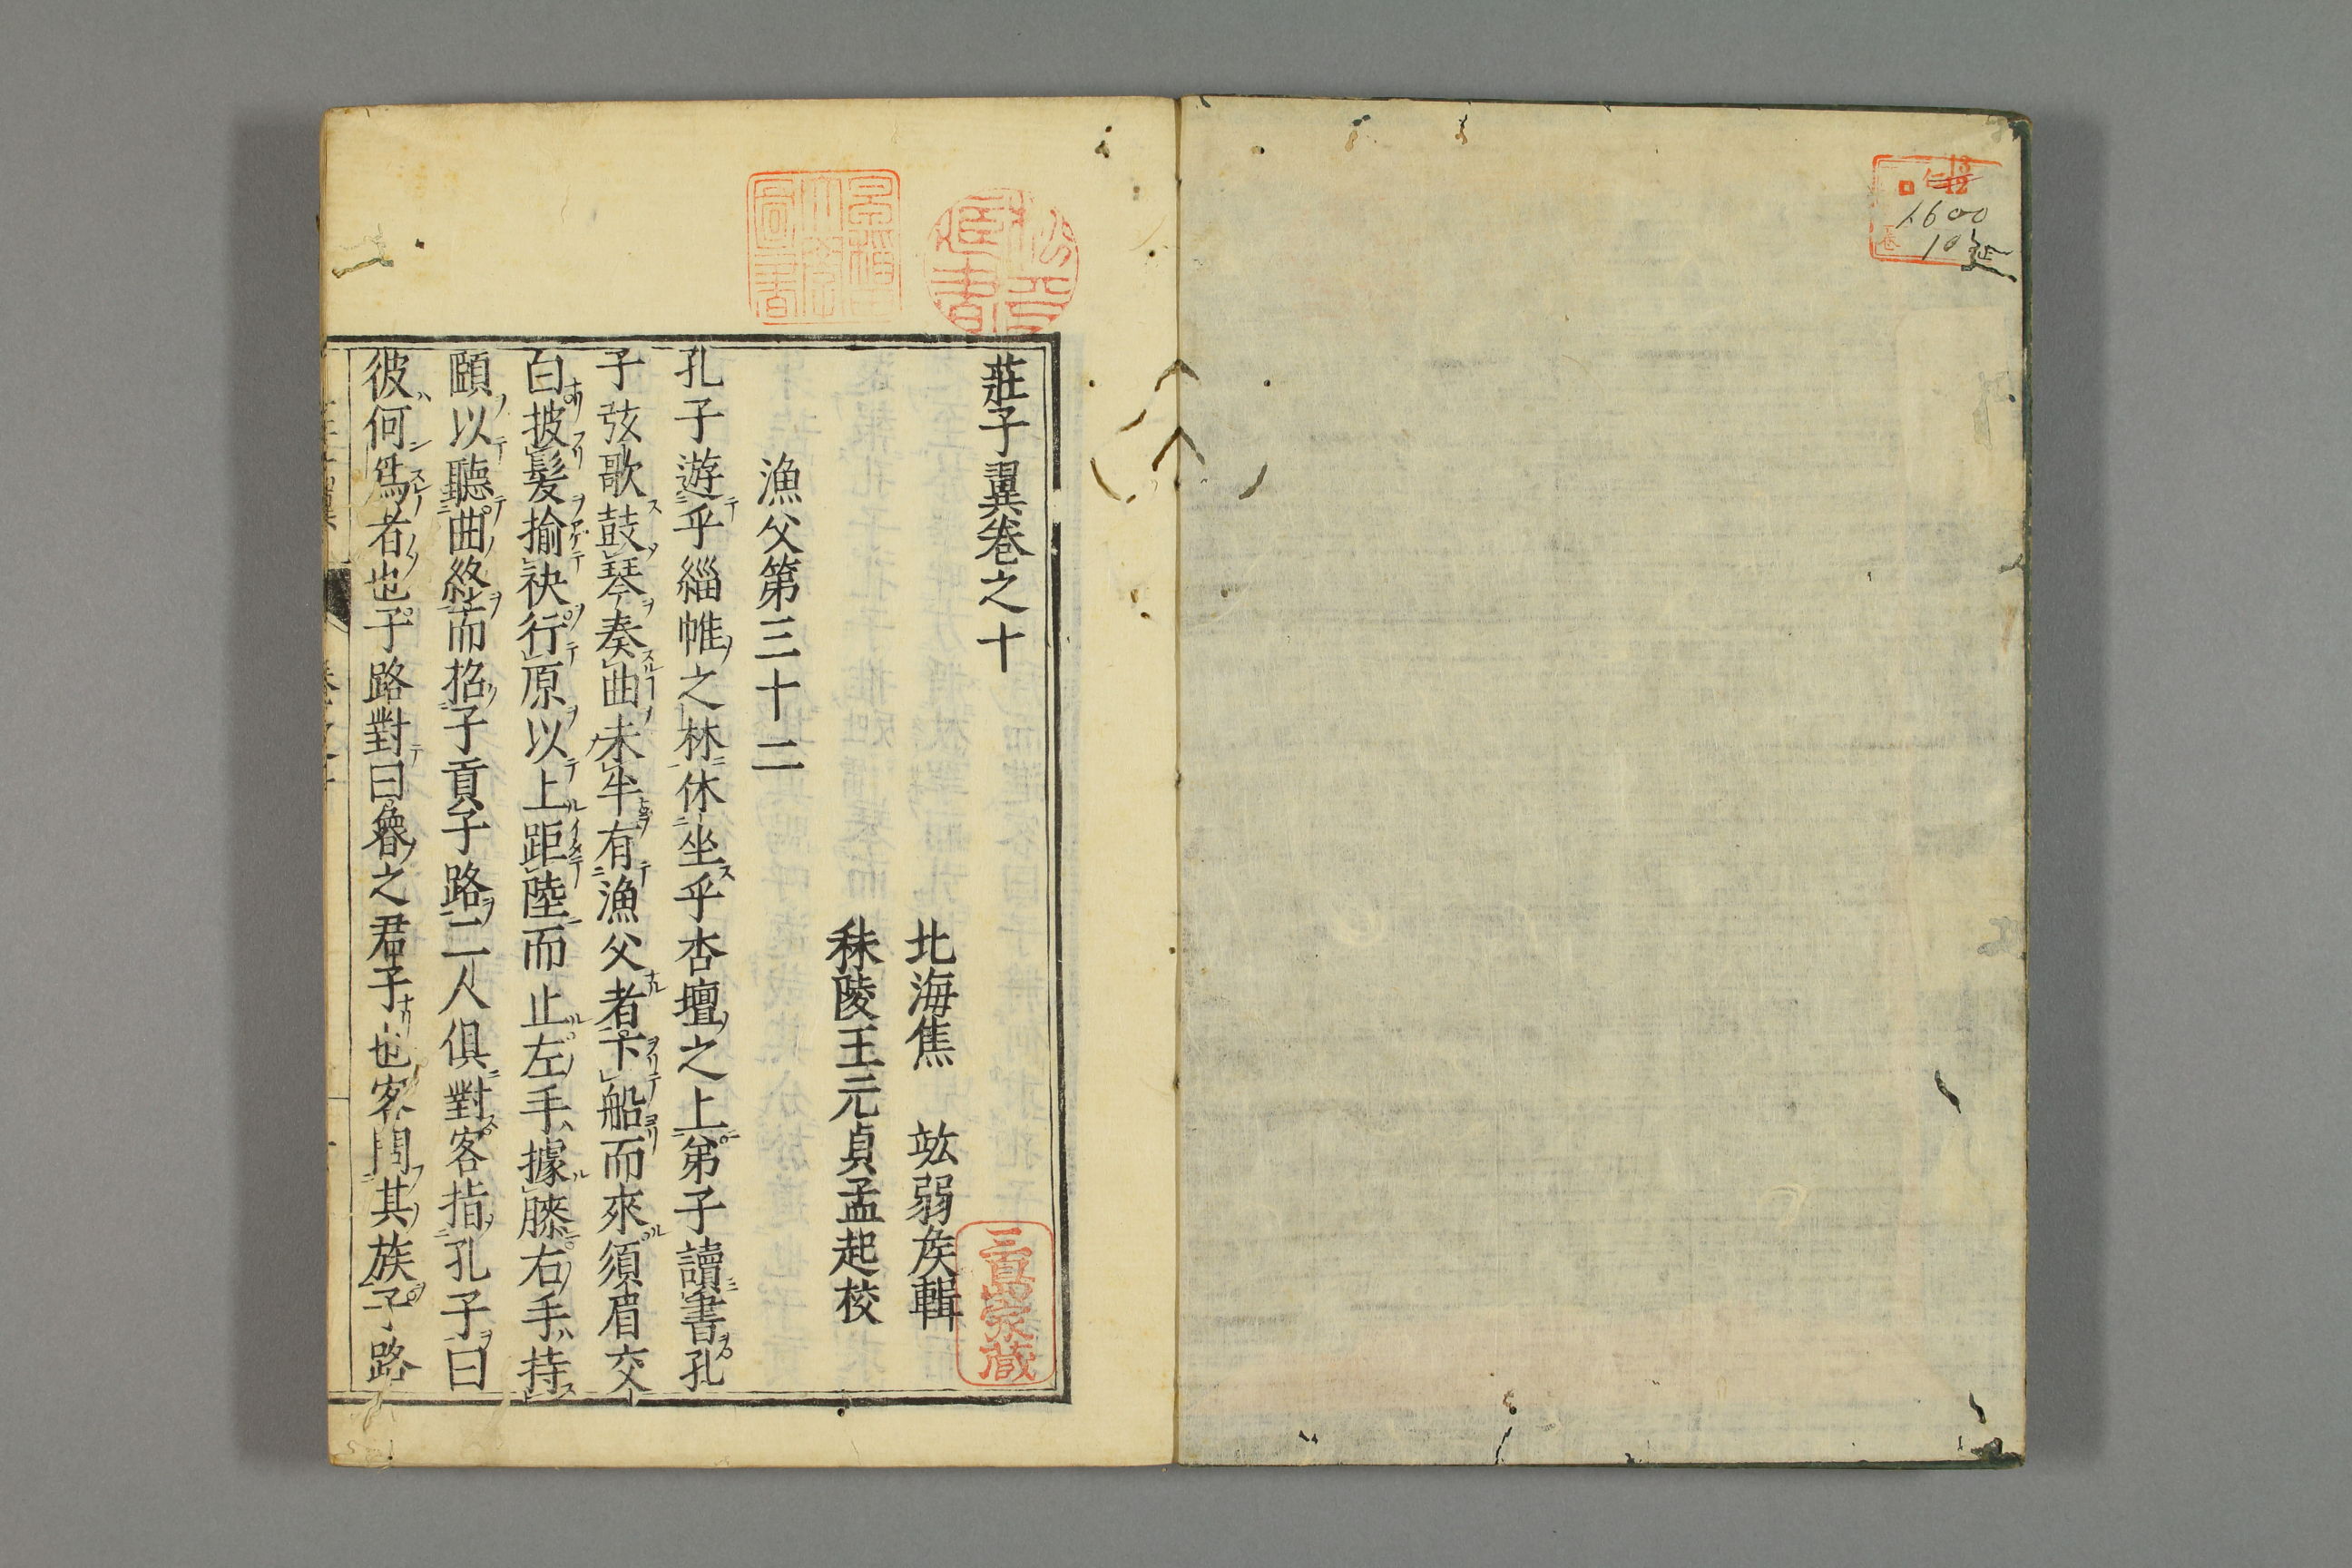 莊子翼卷之十
北海焦竑弱矦輯
秣陵王元貞孟起校
漁父第三十二
孔子遊乎緇帷之林休坐乎杏壇之上弟子讀書孔
子弦歌鼓琴奏曲未半有漁父者下船而來須眉交
白披髮揄袂行原以上距陸而止左手據膝右手持
頤以聽曲終而招子貢子路二人俱對客指孔子曰
彼何爲者也子路對曰魯之君子也客問其族子路
三眞家藏
13
12
1600
10